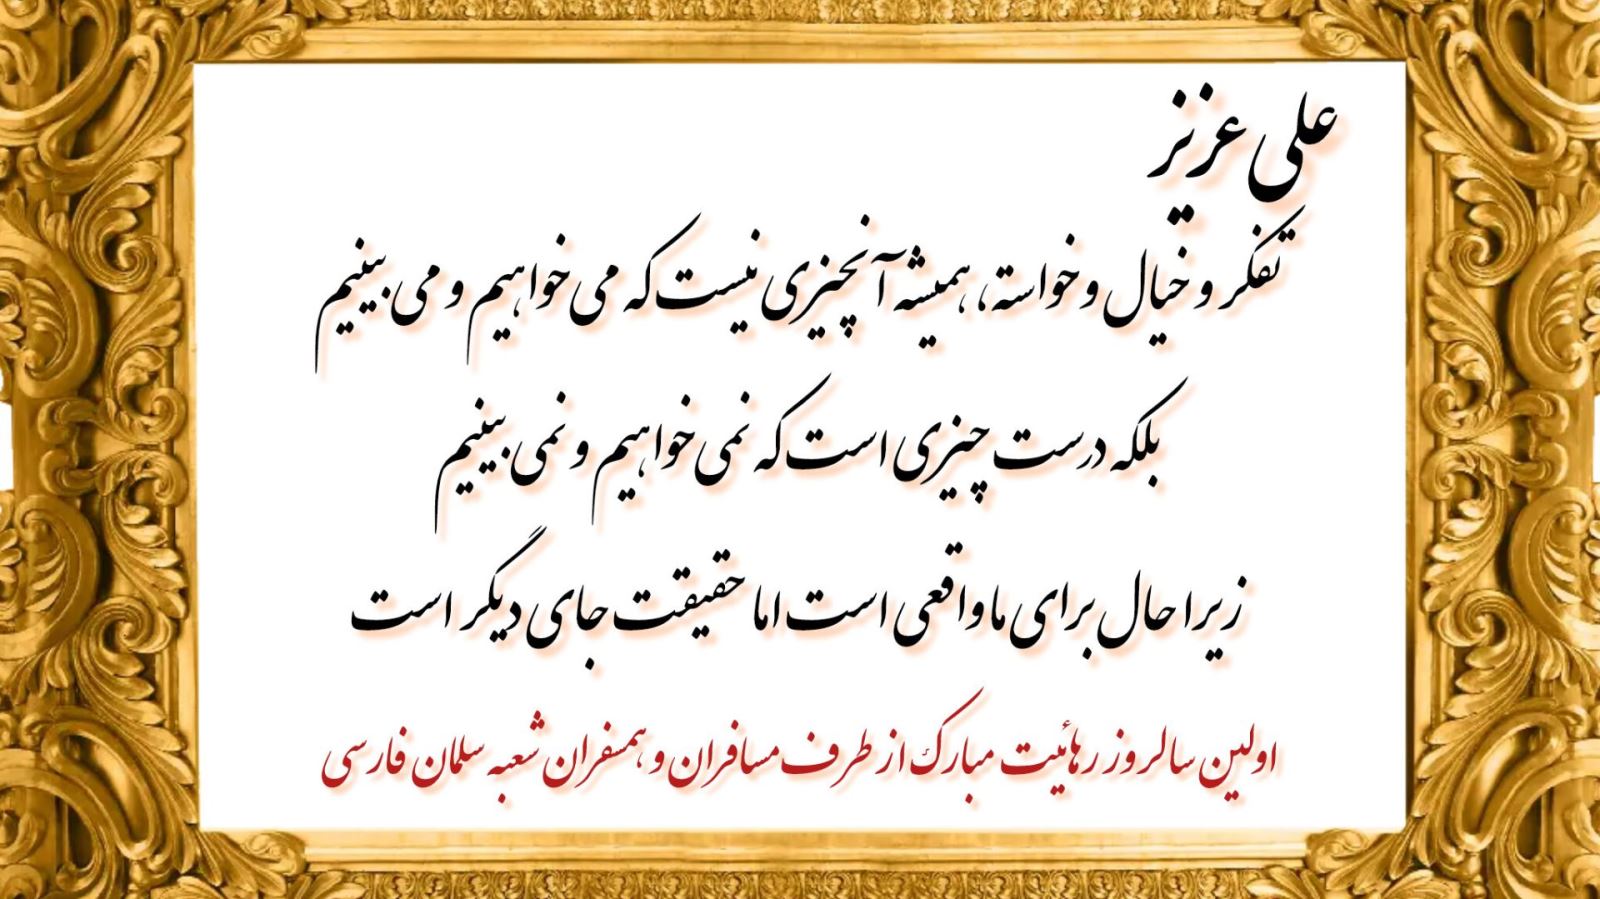 علی عزیز
تفکر و خیال و خواسته، همیشه آنچیزی نیست که می خواهیم و می بینیم
بلکه درست چیزی است که نمی خواهیم و نمی بینیم
زیرا حال برای ما واقعی است اما حقیقت جای دیگر است
اولین سالروز رهائیت مبارک از طرف مسافران و همسفران شعبه سلمان فارسی